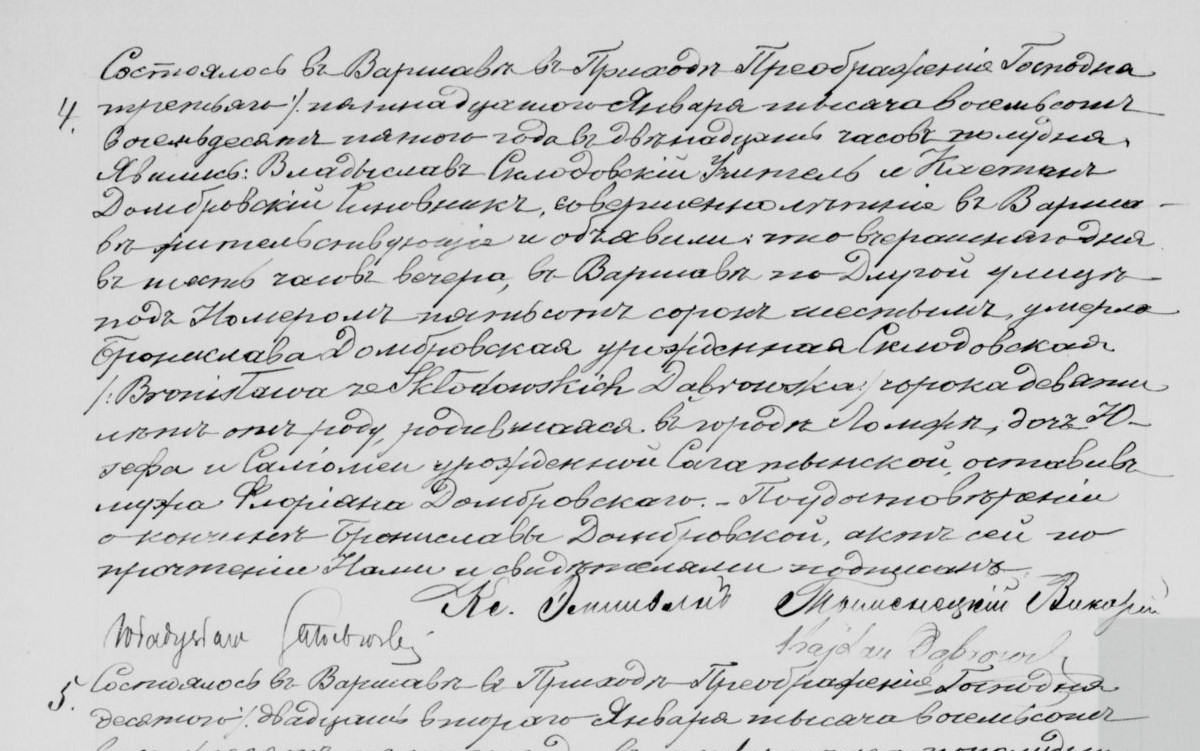 Состоялось въ Варшавѣ въ Приходѣ Преображенія Господня
4.
третьяго /. пятнадцатого Января тысяча восемьсотъ
восемьдесятъ пятого года въ двѣнадцать часовъ полудня.
Явились: Владыславъ Склодовскій Учитель и Каетанъ
Домбровскій Чиновникъ, совершеннолѣтніе въ Варша-
вѣ жительствующіе и объявили: что вчерашняго дня
въ шесть часовъ вечера, въ Варшавѣ по Длугой улицѣ
подъ Номеромъ пятьсотъ сорокъ шестымъ, умерла
Бронислава Домбровская урожденная Склодовская
/:Bronisława ze Skłodowskich Dąbrowska:/ сорока девяти
лѣтъ отъ роду, родившаяся въ городѣ Ломжѣ, дочь Ю-
зефа и Саломеи урожденной Сагатынской, оставивъ
мужа Флоріана Домбровскаго. – По удостовѣреніи
о кончинѣ Брониславы Домбровской, актъ сей по
прочтеніи Нами и свидѣтелями подписанъ
Кс. Тыменецкій Викарій
Władysław Skłodowski
Kajetan Dąbrowski
5.
Состоялось въ Варшавѣ въ Приходѣ Преображенія Господня
десятого /. двадцать второго Января тысяча восемьсотъ